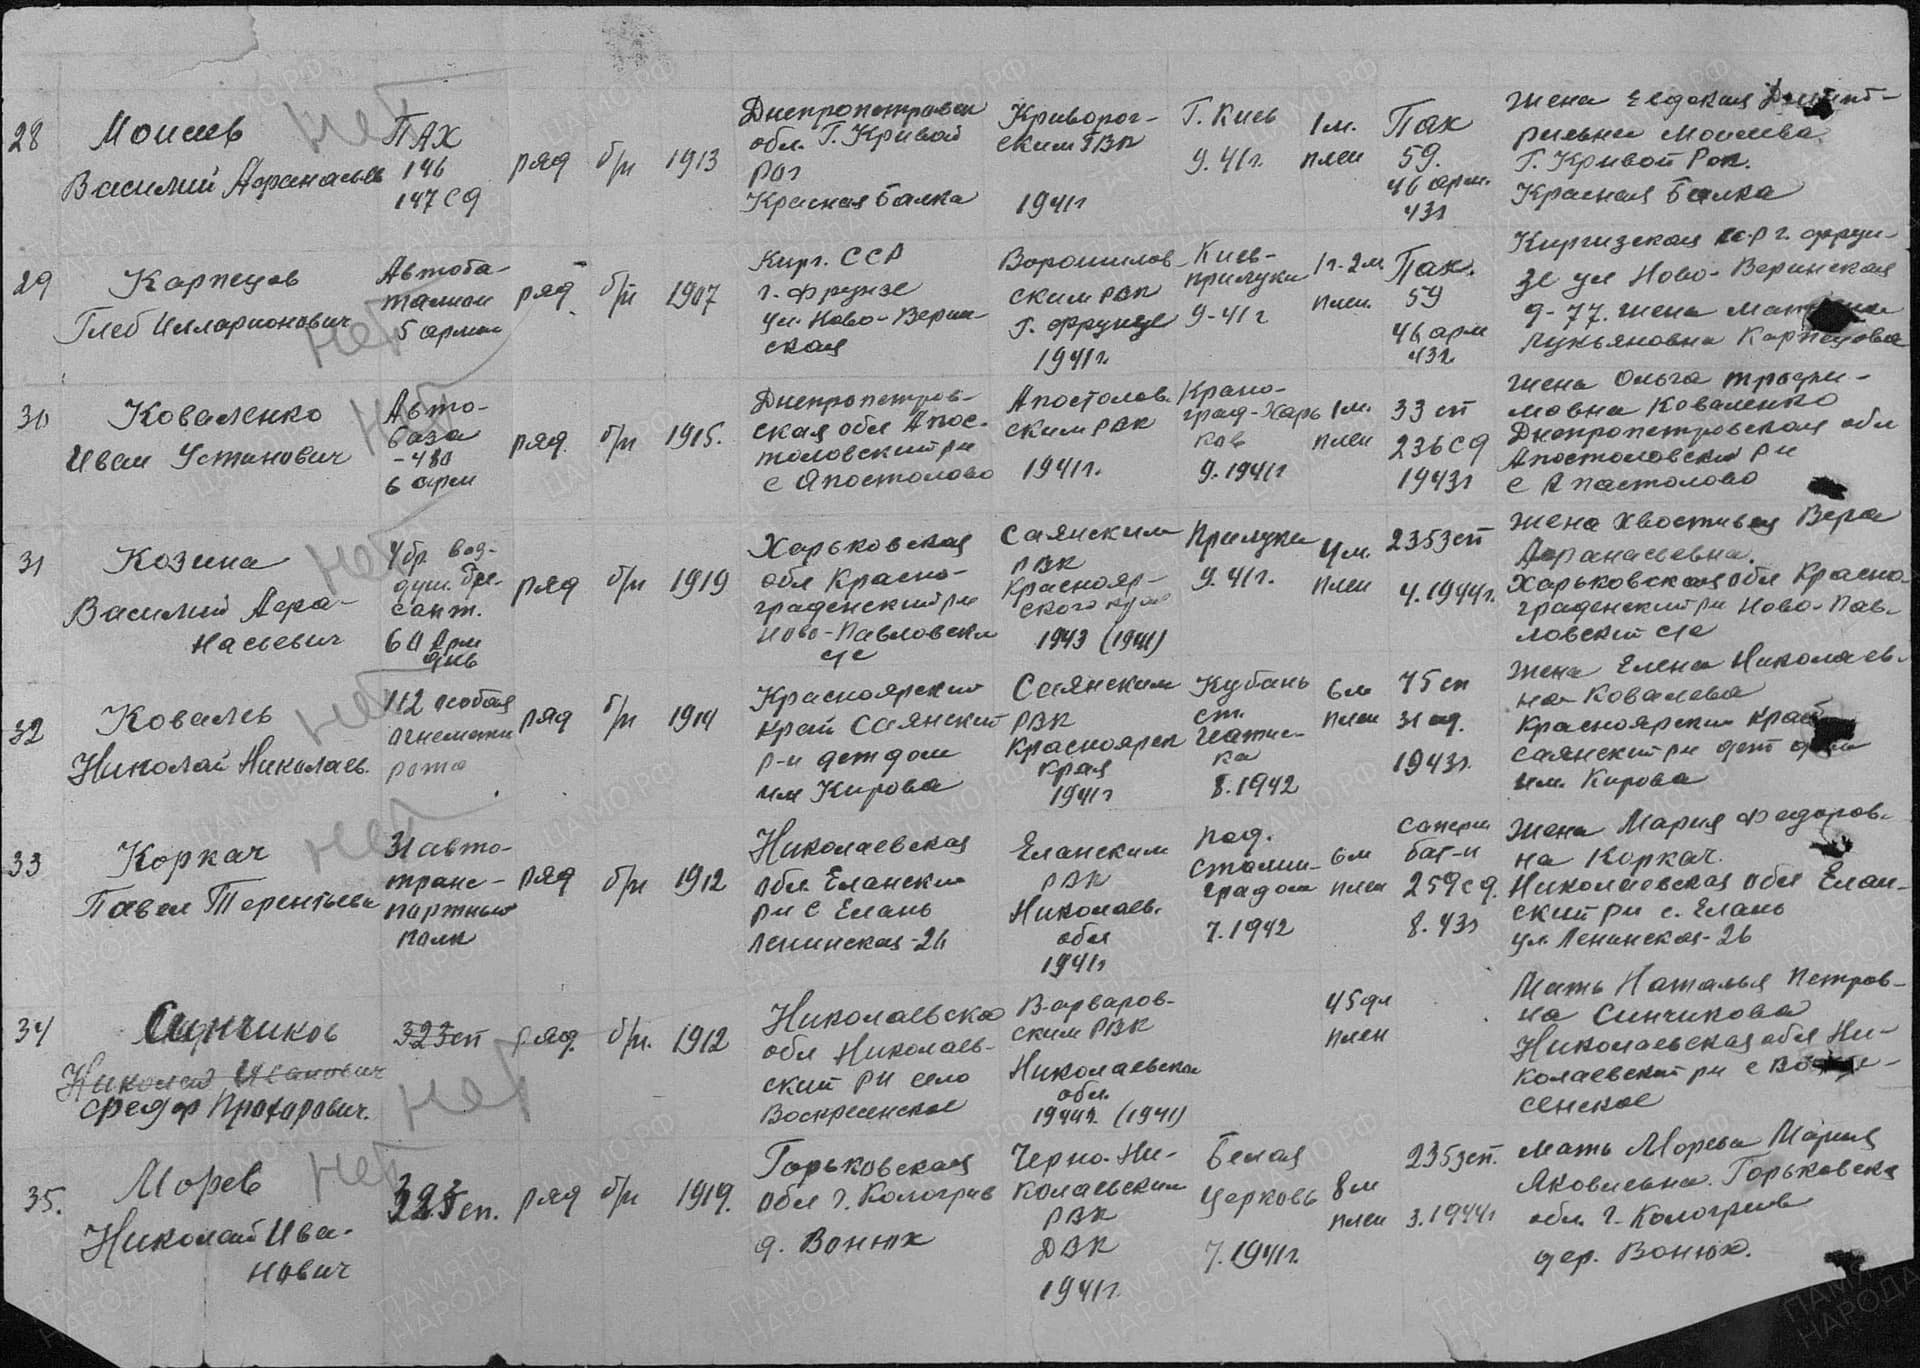 28
Моисеев
Василий Афанасьев
нет
ПАХ
146
147 сд
ряд
б/п
1913
Днепропетровск
обл. г. Кривой
рог
Красная балка
Криворог-
ским РВК
1941г
г. Киев
9.41г.
1м.
плен
Пах
59.
46 арм.
43г
жена Евдокия
риевна Моисеева
г. Кривой Рог.
Красная балка
29
Карпецов
Глеб Илларионович
нет
Автоба-
тальон
5 армии
ряд
б/п
1907
Кирг. ССР
г. Фрунзе
ул. Ново-Верин-
ская
Ворошилов
ским РВК
г. Фрунзе
1941г.
Киев-
Прилуки
9-41г
1г.-2м
плен.
Пах.
59
46 арм
43г.
Киргизская ССР г. Фрун-
зе ул Ново-Веринская
д-77. жена
Лукьяновна Карпецова
30
Коваленко
Иван Устинович
нет
Авто-
база
-480
6 арм
ряд.
б/п
1915.
Днепропетров-
ская обл Апос-
толовский р-н
с Апостолово
Апостолов.
ским РВК
1941г.
Красно-
град-Харь
ков
9.1941г
1м.
плен
33 сп
236 сд
1943г
жена Ольга Трофи-
мовна Коваленко
Днепропетровская обл
Апостоловский р-н
с Апастолово
31
Козина
Василий Афа-
насьевич
нет
4 бр. воз-
душ. де-
сант.
60 арм
ряд
б/п
1919
Харьковская
обл Красно-
граденский р-н
Ново-Павловски
с/с
Саянским
РВК
Краснояр-
ского края
1943 (1941)
Прилуки
9.41г.
4м.
плен
235 зсп
4.1944г.
жена Хвостивец Вера
Афанасьевна.
Харьковская обл Красно-
граденский р-н Ново-Пав-
ловский с/с
32
Ковалев
Николай Николаев.
нет
112 особая
огнеметн
рота
ряд
б/п
1914
Красноярский
край Саянский
р-н детдом
им Кирова
Саянским
РВК
Красноярск
края
1941г
Кубань
ст.
8.1942
6м
плен
75 сп
31 сд.
1943г.
жена Елена Николаев-
на Ковалева
Красноярский край
Саянский р-н дет дом
им. Кирова
33
Коркач
Павел Терентьеви
нет
31 авто-
транс-
партный
полк
ряд
б/п
1912
Николаевская
обл. Еланский
р-н с Елань
Ленинская-26
Еланским
РВК
Николаев.
обл
1941г
под.
Сталин-
градом
7.1942
6м
плен
саперн
бат-н
259 сд.
8.43г
жена Мария Федоров-
на Коркач.
Николаевская обл Елан-
ский р-н с. Елань
ул Ленинская-26
34
Синчиков
Николай Иванович
Федор Прохорович.
нет
323 сп
ряд.
б/п.
1912
Николаевско
обл Николаев-
ский р-н село
Воскресенское
Варваров-
ским РВК
Николаевской
обл.
1944г. (1941)
45 дл
плен
Мать Наталья Петров-
на Синчикова
Николаевская обл Ни-
колаевский р-н с
сенское
35.
Морев
Николай Ива-
нович
нет
323 сп.
ряд
б/п
1919.
Горьковская
обл г. Кологрив
д. Вонюх
Черно-Ни-
колаевским
РВК
ДВК
1941г
Белая
Церковь
7.1941г.
8м
плен
235 зсп.
3.1944г
мать Морева Мария
Яковлевна. Горьковска
обл. г. Кологрив
дер. Вонюх.